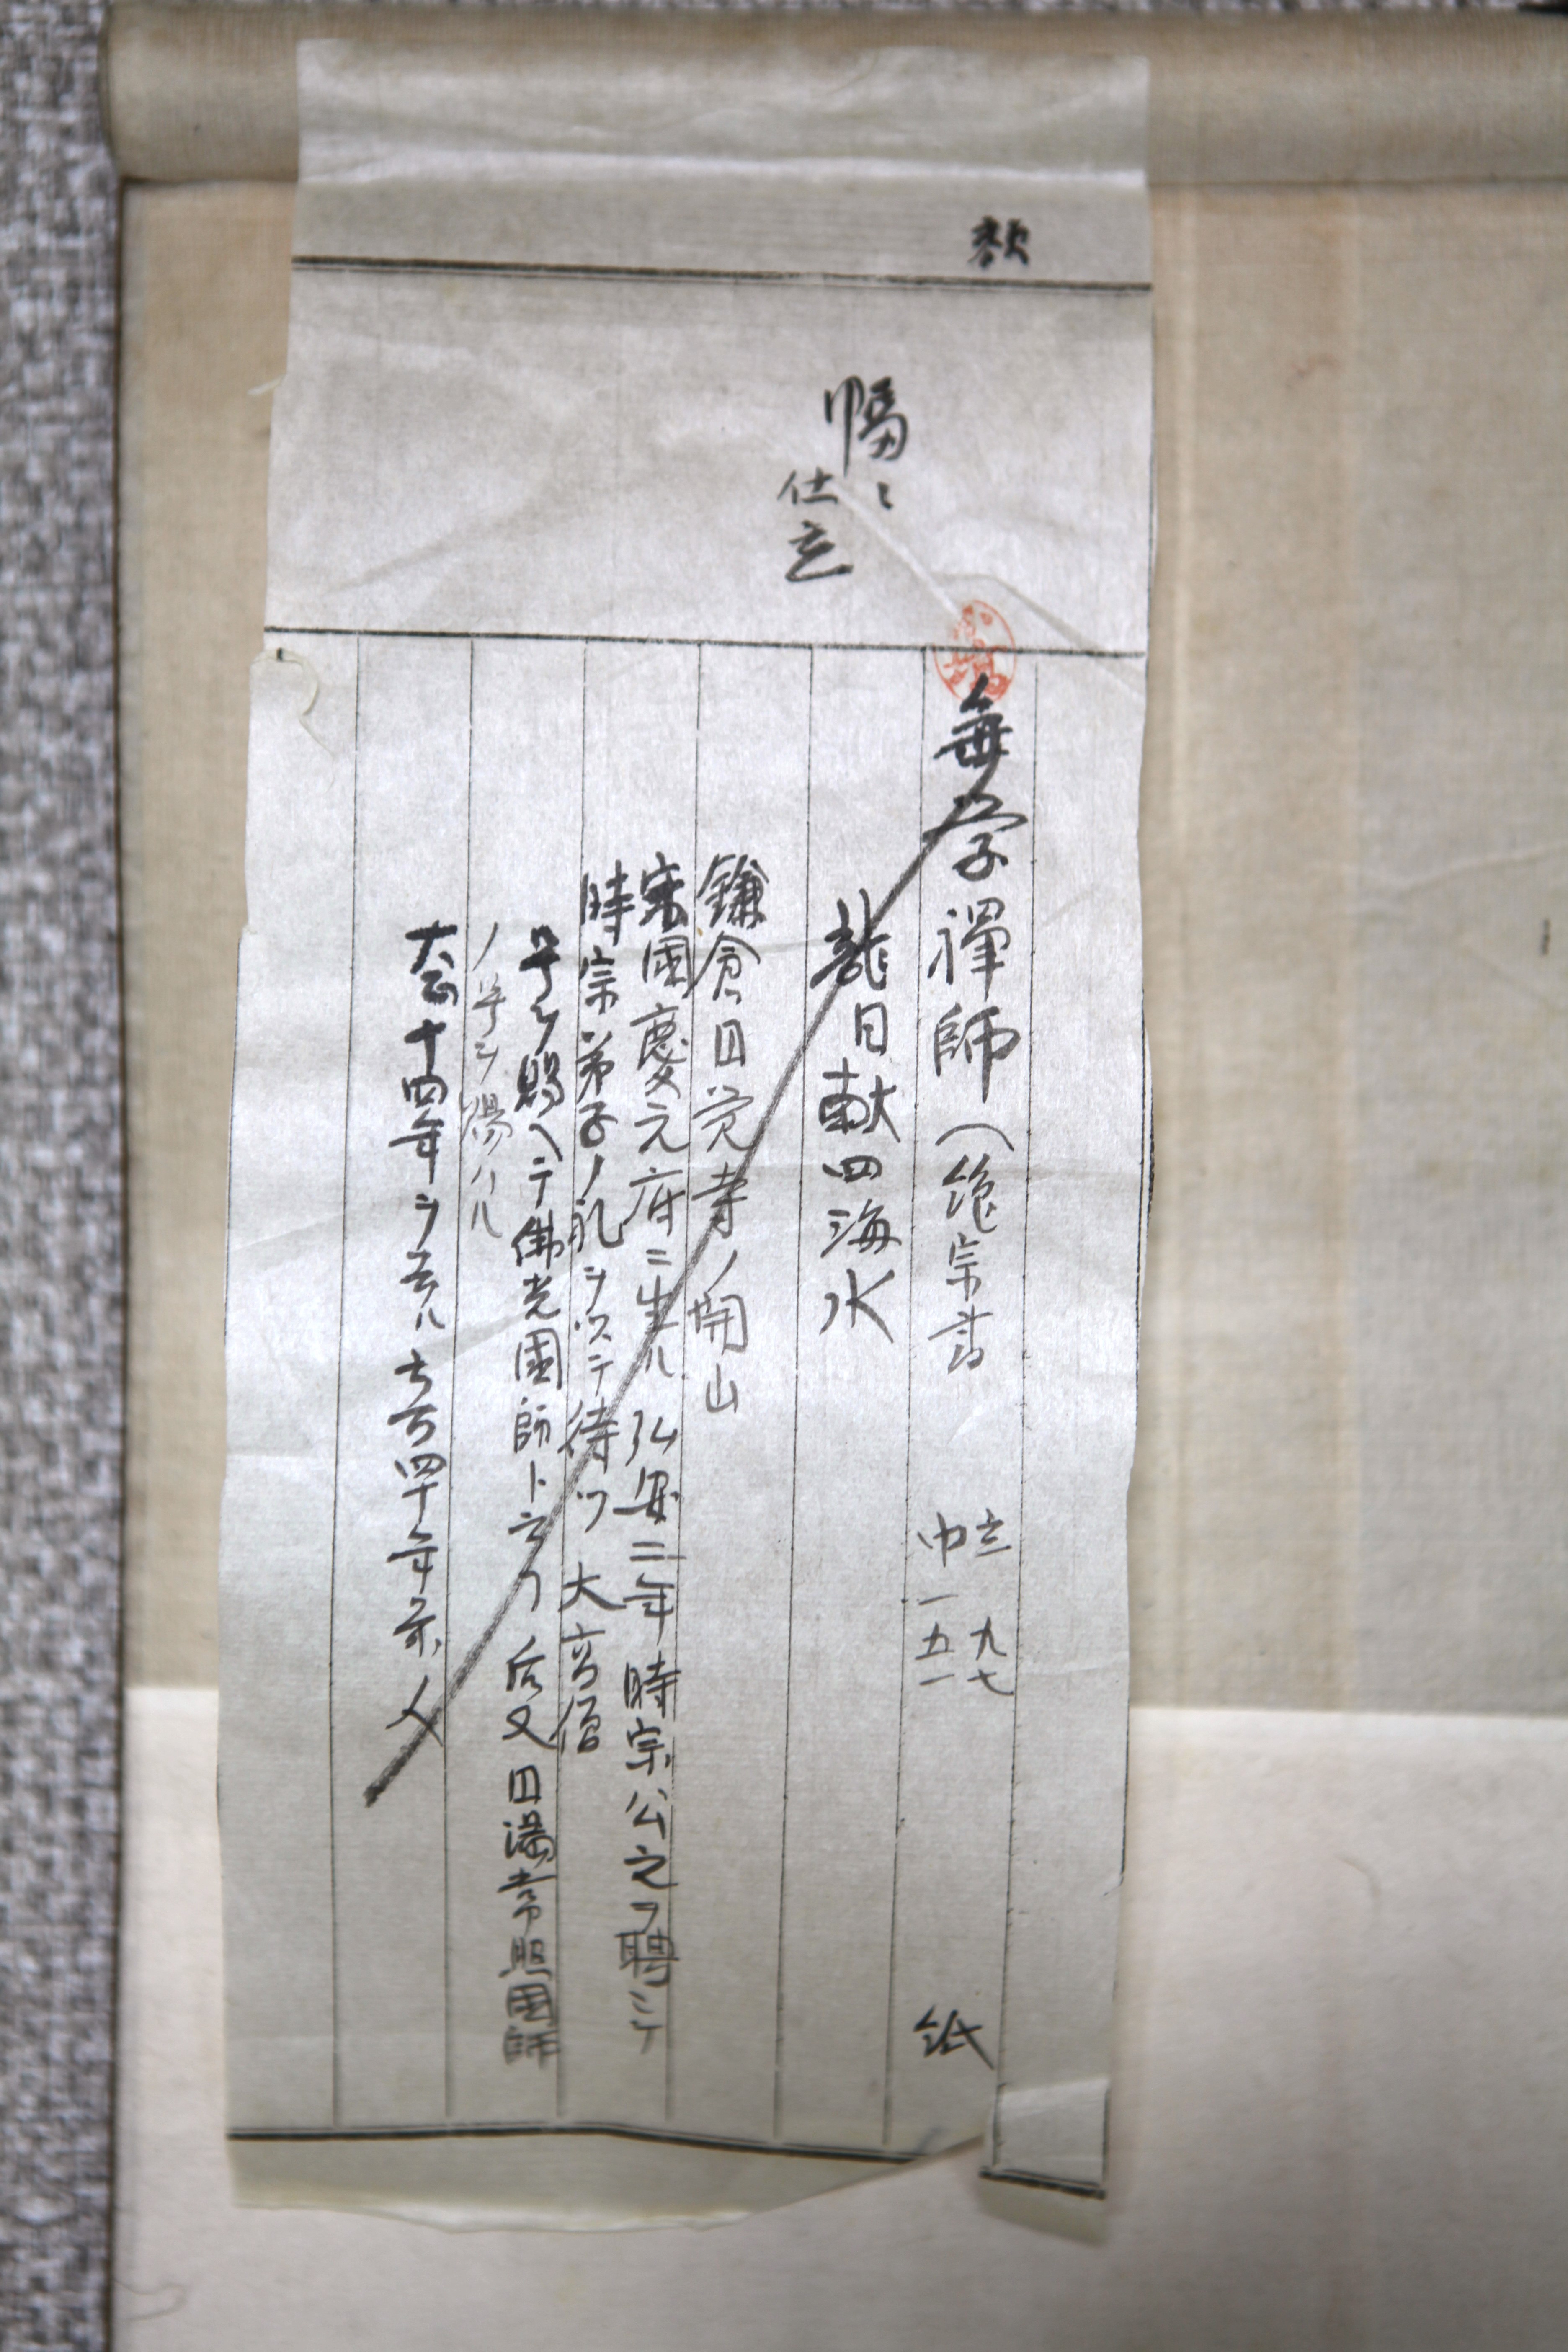 額
幅ニ
仕立
無学禅師(絶宗書
立 九七
巾 一五一
紙
龍日献四海水
鎌倉円覚寺ノ開山
宋國慶元府ニ生ル 弘安二年時宗公之ヲ聘シテ
時宗弟子ノ礼ヲ以テ待ツ 大高僧
号ヲ賜ヘテ佛光國師ト云フ 后又円満常照国師
ノ号ヲ賜ハル
大正十四年ヲ去ル 六百四十年前ノ人